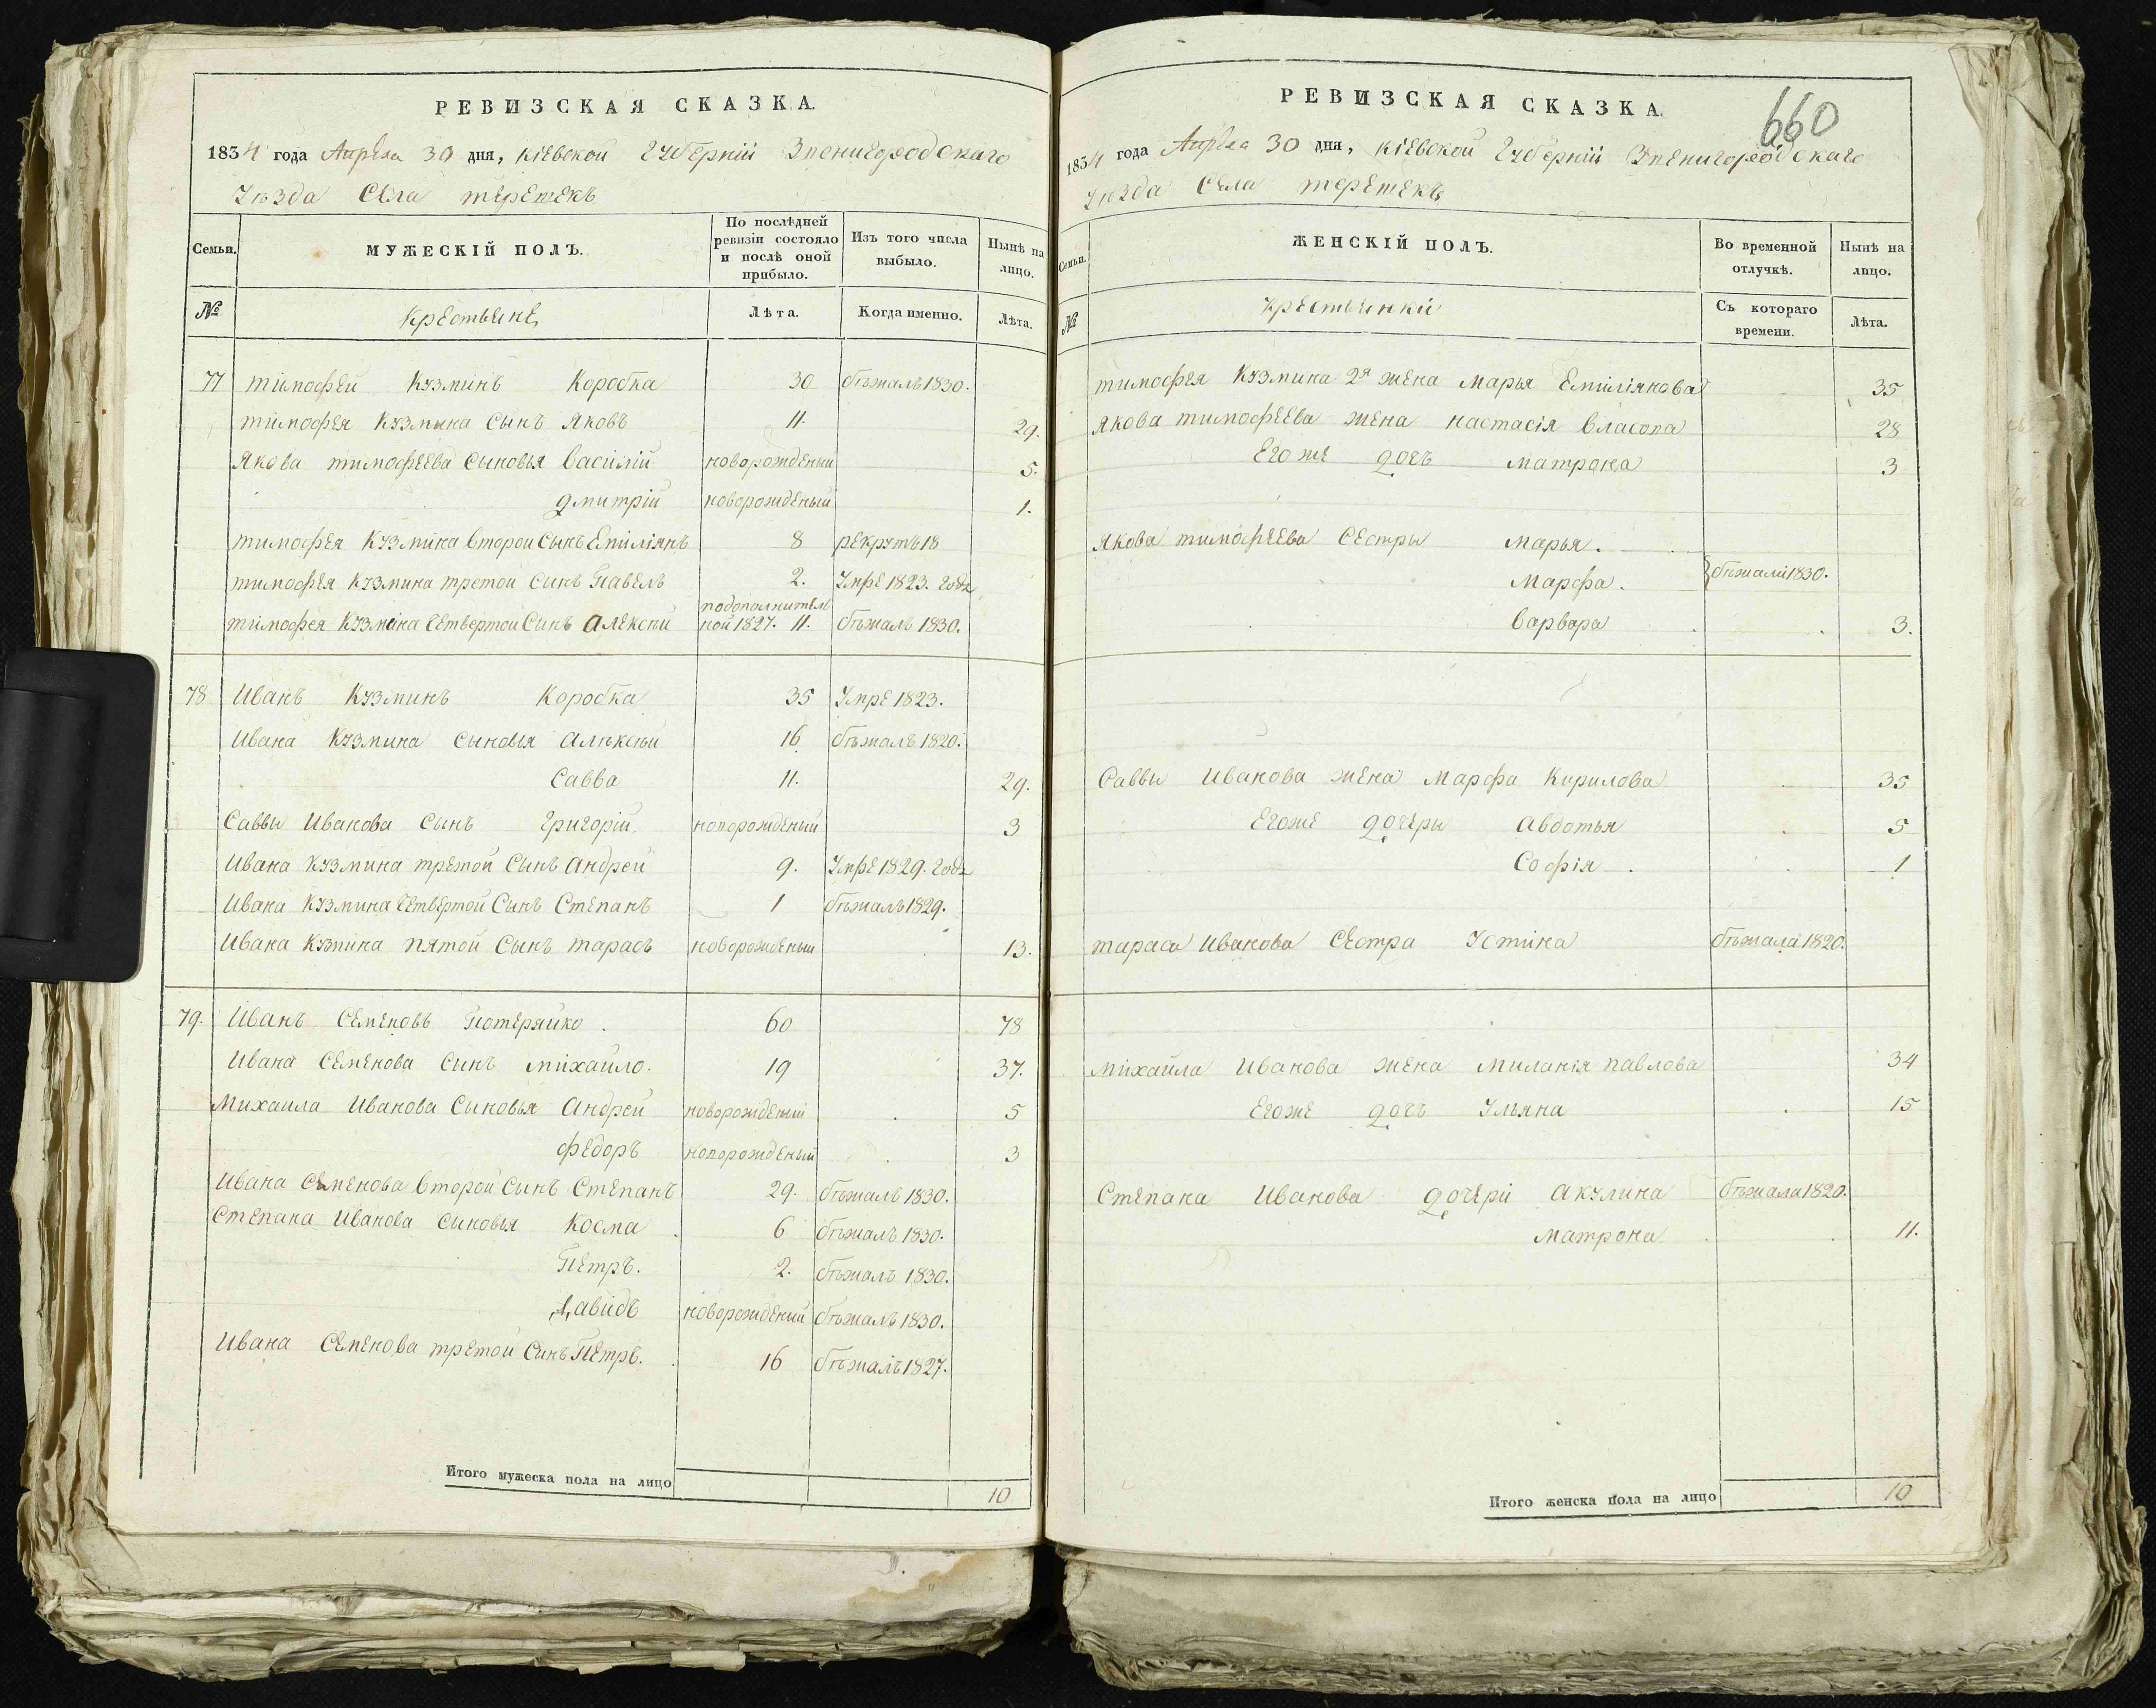 РЕВИЗСКАЯ СКАЗКА.
1834 года Апреля 30 дня, Кіевской Губерніи Звенигородскаго
Уѣзда Села терешекъ
Семьи.
МУЖЕСКІЙ ПОЛЪ.
По послѣдней ревизіи состояло и послѣ оной прибыло.
Изъ того числа выбыло.
Нынѣ на лицо.
№
Крестьяне
Лѣта.
Когда именно.
Лѣта.
77 тимофей Кузминъ Коробка 30 бѣжалъ 1830.
тимофея Кузмина Сынъ Яковъ 11. 29.
Якова тимофеева Сыновья Василій новорожденый 5.
дмитрій новорожденый 1.
тимофея Кузмина второй Сынъ Емиліянъ 8 рекрутъ 18
тимофея Кузмина третой Сынъ Павелъ 2. Умре 1823. года
тимофея Кузмина Четвертой Сынъ Алексѣй подополнитель
ной 1827. 11. бѣжалъ 1830.
78 Иванъ Кузминъ Коробка 35 Умре 1823.
Ивана Кузмина Сыновья Алѣксѣй 16 бѣжалъ 1820.
Савва 11. 29.
Саввы Иванова Сынъ григорій новорожденый 3
Ивана Кузмина третой Сынъ Андрей 9. Умре 1829. года
Ивана Кузмина Четвертой Сынъ Степанъ 1 бѣжалъ 1829.
Ивана Кузмина пятой Сынъ тарасъ новорожденый 13.
79. Иванъ Семеновъ Потеряйко. 60 78
Ивана Семенова Сынъ михайло. 19 37.
Михаила Иванова Сыновья Андрей новорожденый 5
федоръ новорожденый 3
Ивана Семенова второй Сынъ Степанъ 29. бѣжалъ 1830.
Степана Иванова Сыновья Косма 6 бѣжалъ 1830.
Петръ. 2. бѣжалъ 1830.
Давидъ новорожденый бѣжалъ 1830.
Ивана Семенова третой Сынъ Петръ. 16 бѣжалъ 1827.
Итого мужеска пола на лицо 10
РЕВИЗСКАЯ СКАЗКА.
660
1834 года Апреля 30 дня, Кіевской Губерніи Звенигородскаго
Уѣзда Села терешекъ
Семьи.
ЖЕНСКІЙ ПОЛЪ.
Во временной отлучкѣ.
Нынѣ на лицо.
№
Крестьянки
Съ котораго времени.
Лѣта.
тимофея Кузмина 2я жена Марья Емиліянова 35
Якова тимофеева жена настасія Власова 28
Егоже дочь матрона 3
Якова тимофеева Сестры марья.
Марфа. бѣжали 1830.
Варвара 3.
Саввы Иванова жена марфа Кирилова 35
Егоже дочеры Авдотья 5
Софія. 1
тараса Иванова Сестра Устина бѣжала 1820.
Михайла Иванова жена Миланія павлова 34
Егоже дочь Ульяна 15
Степана Иванова дочери Акулина бѣжала 1820.
матрона 11.
Итого женска пола на лицо 10